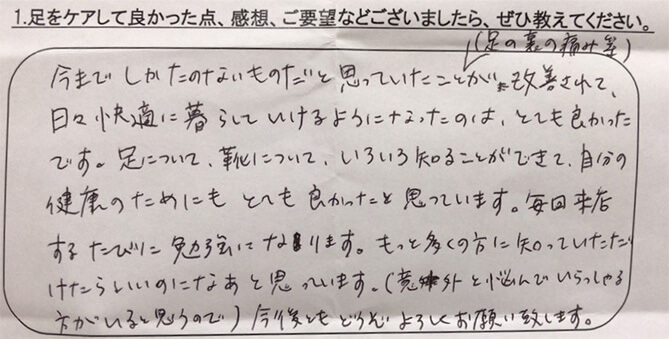 1.足をケアして良かった点、感想、ご要望などございましたら、ぜひ教えてください。
(足の裏の痛み等)
今までしかたのないものだと思っていたことが改善されて、
日々快適に暮らしていけるようになったのは、とても良かった
です。足について、靴について、いろいろ知ることができて、自分の
健康のためにもとても良かったと思っています。毎回来店
するたびに勉強になります。もっと多くの方に知っていただ
けたらいいのになあと思っています。(意外と悩んでいらっしゃる
方がいると思うので)今後ともどうぞよろしくお願い致します。